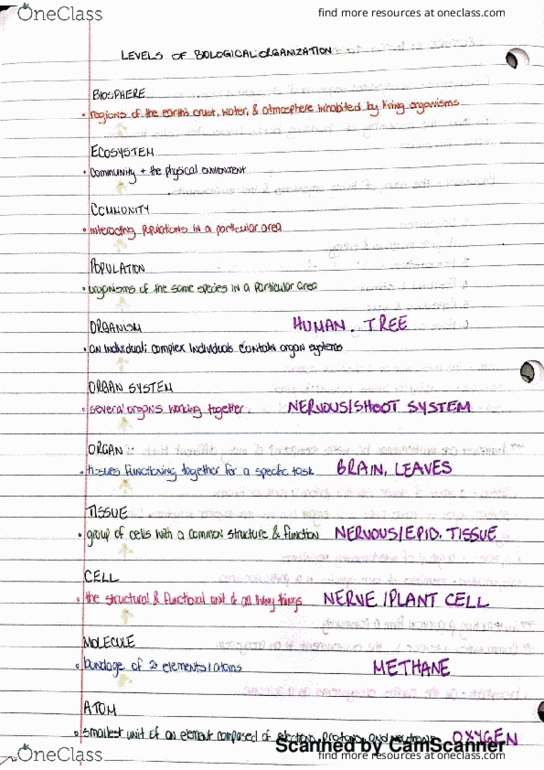 OneClass
find more resources at oneclass.com
LEVELS OF BIOLOGICAL ORGANIZATION
BIOSPHERE
• regions of the earth's crust, water, & atmosphere inhabited by living organisms
ECOSYSTEM
• community + the physical enviroment
COMMUNITY
• interacting populations in a particular area
POPULATION
• organisms of the same species in a particular area
ORGANISM HUMAN, TREE
• an individual; complex individuals contain organ systems
ORGAN SYSTEM
• several organs working together. NERVOUS/SHOOT SYSTEM
ORGAN
• tissues functioning together for a specific task BRAIN, LEAVES
TISSUE
• group of cells with a common structure & function NERVOUS/EPID. TISSUE
CELL
• the structural & functional unit of all living things NERVE/PLANT CELL
MOLECULE
• bondage of 2 elements/atoms METHANE
ATOM
• smallest unit of an element composed of electrons, protons, and neutrons OXYGEN
Scanned by CamScanner
OneClass
find more resources at oneclass.com